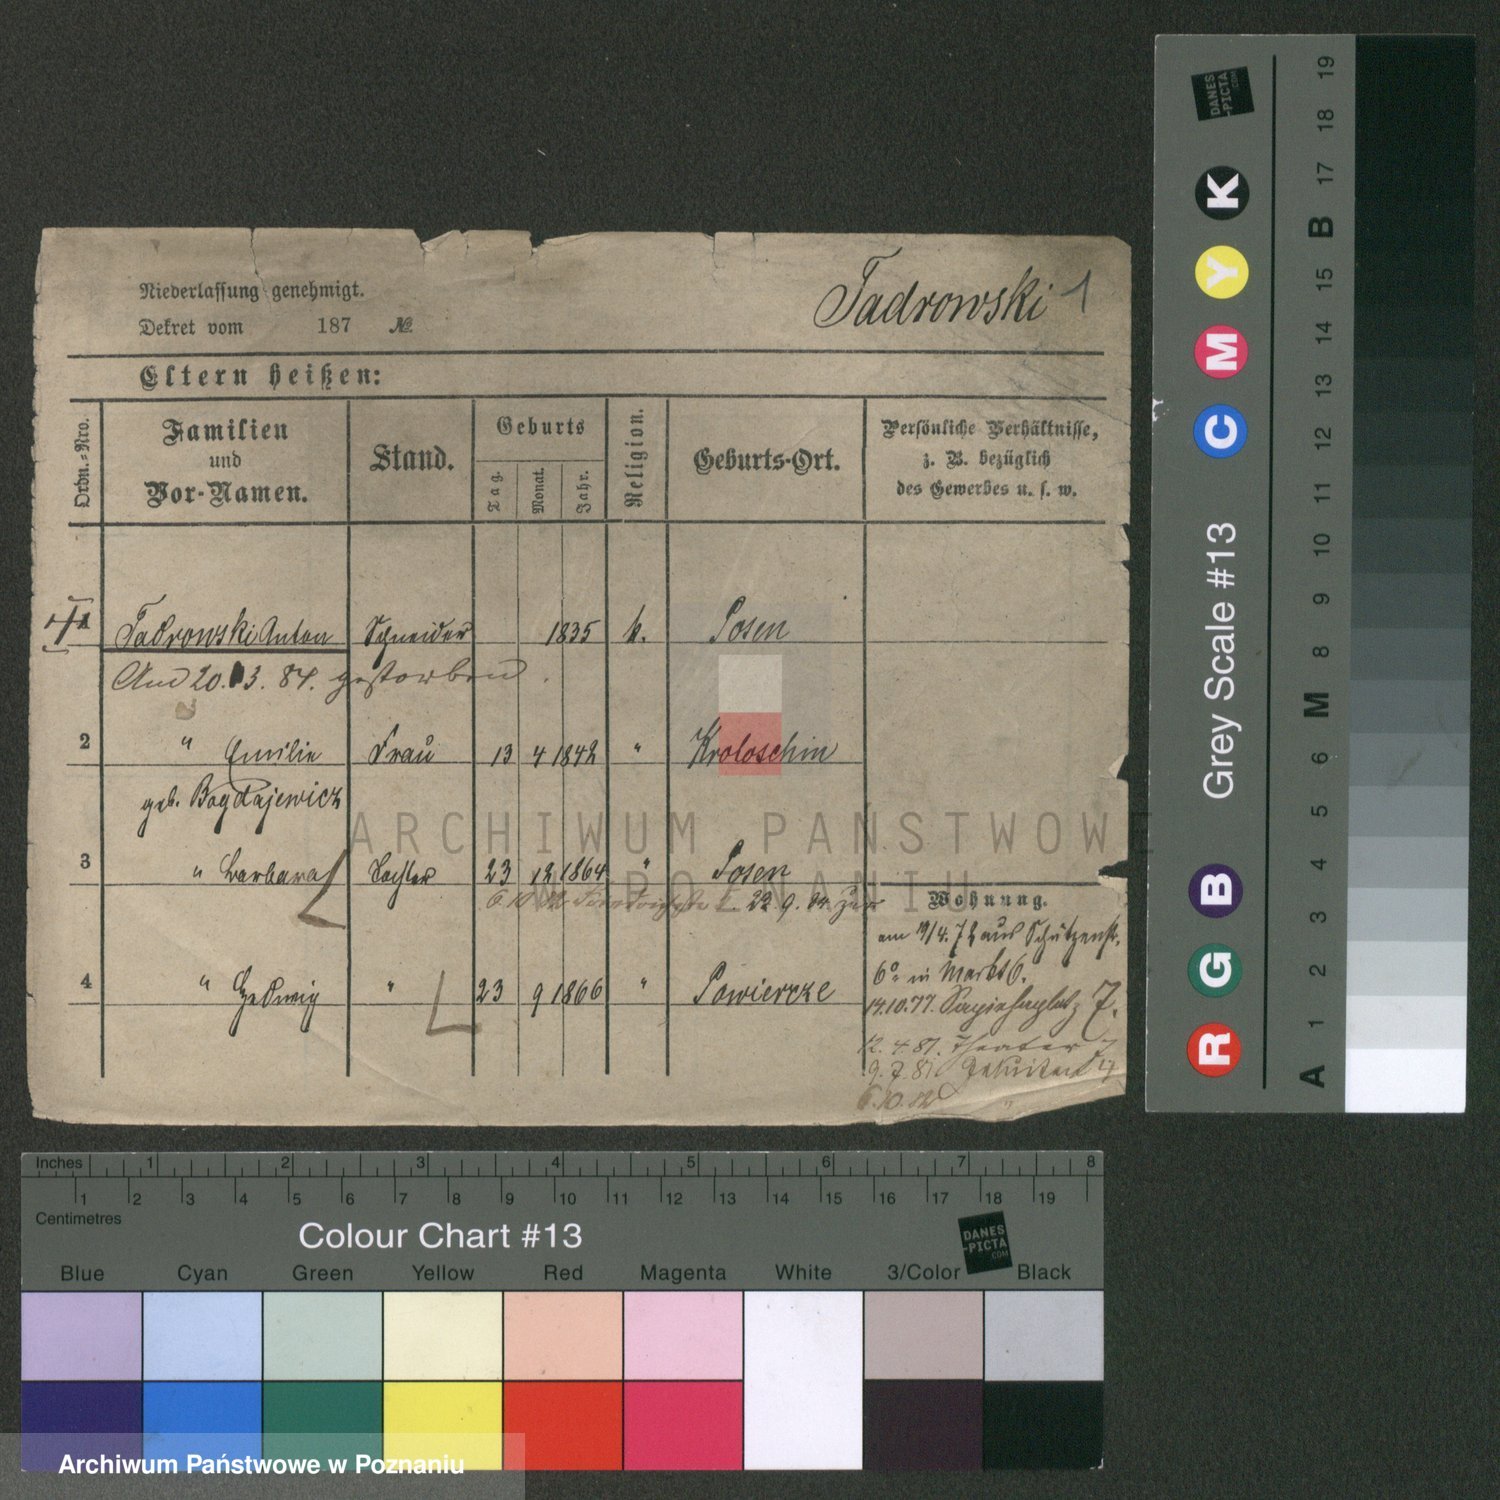 Niederlassung genehmigt.
Dekret vom 187 №
Tadrowski 1
Eltern heißen:
Ordn.-Nro.
Familien und Vor-Namen.
Stand.
Geburts
Tag.
Monat.
Jahr.
Religion.
Geburts-Ort.
Persönliche Verhältnisse, z. B. bezüglich des Gewerbes u. s. w.
1 Tadrowski Anton Schneider 1835 k. Posen
Am 20. 3. 84. gestorben.
2 " Emilie Frau 13 4 1842 " Kroloschin
geb. Bogdajewicz
3 " Barbara Tochter 23 12 1864 " Posen
22. 9. 84. zur
4 " Hedwig " 23 9 1866 " Powiercze
Wohnung.
am 19/4. 72 aus Schützenstr.
6a in Markt 6.
14.10.77. Sapiehaplatz 7.
12. 4. 81. Theater 7
9. 7. 81.
6.10.82 "
ARCHIWUM PAŃSTWOWE
W POZNANIU
DANES-PICTA.COM
Grey Scale #13
R G B C M Y K
A 1 2 3 4 5 6 M 8 9 10 11 12 13 14 15 B 17 18 19
Inches 1 2 3 4 5 6 7 8
1 2 3 4 5 6 7 8 9 10 11 12 13 14 15 16 17 18 19
Centimetres
Colour Chart #13
DANES-PICTA.COM
Blue Cyan Green Yellow Red Magenta White 3/Color Black
Archiwum Państwowe w Poznaniu